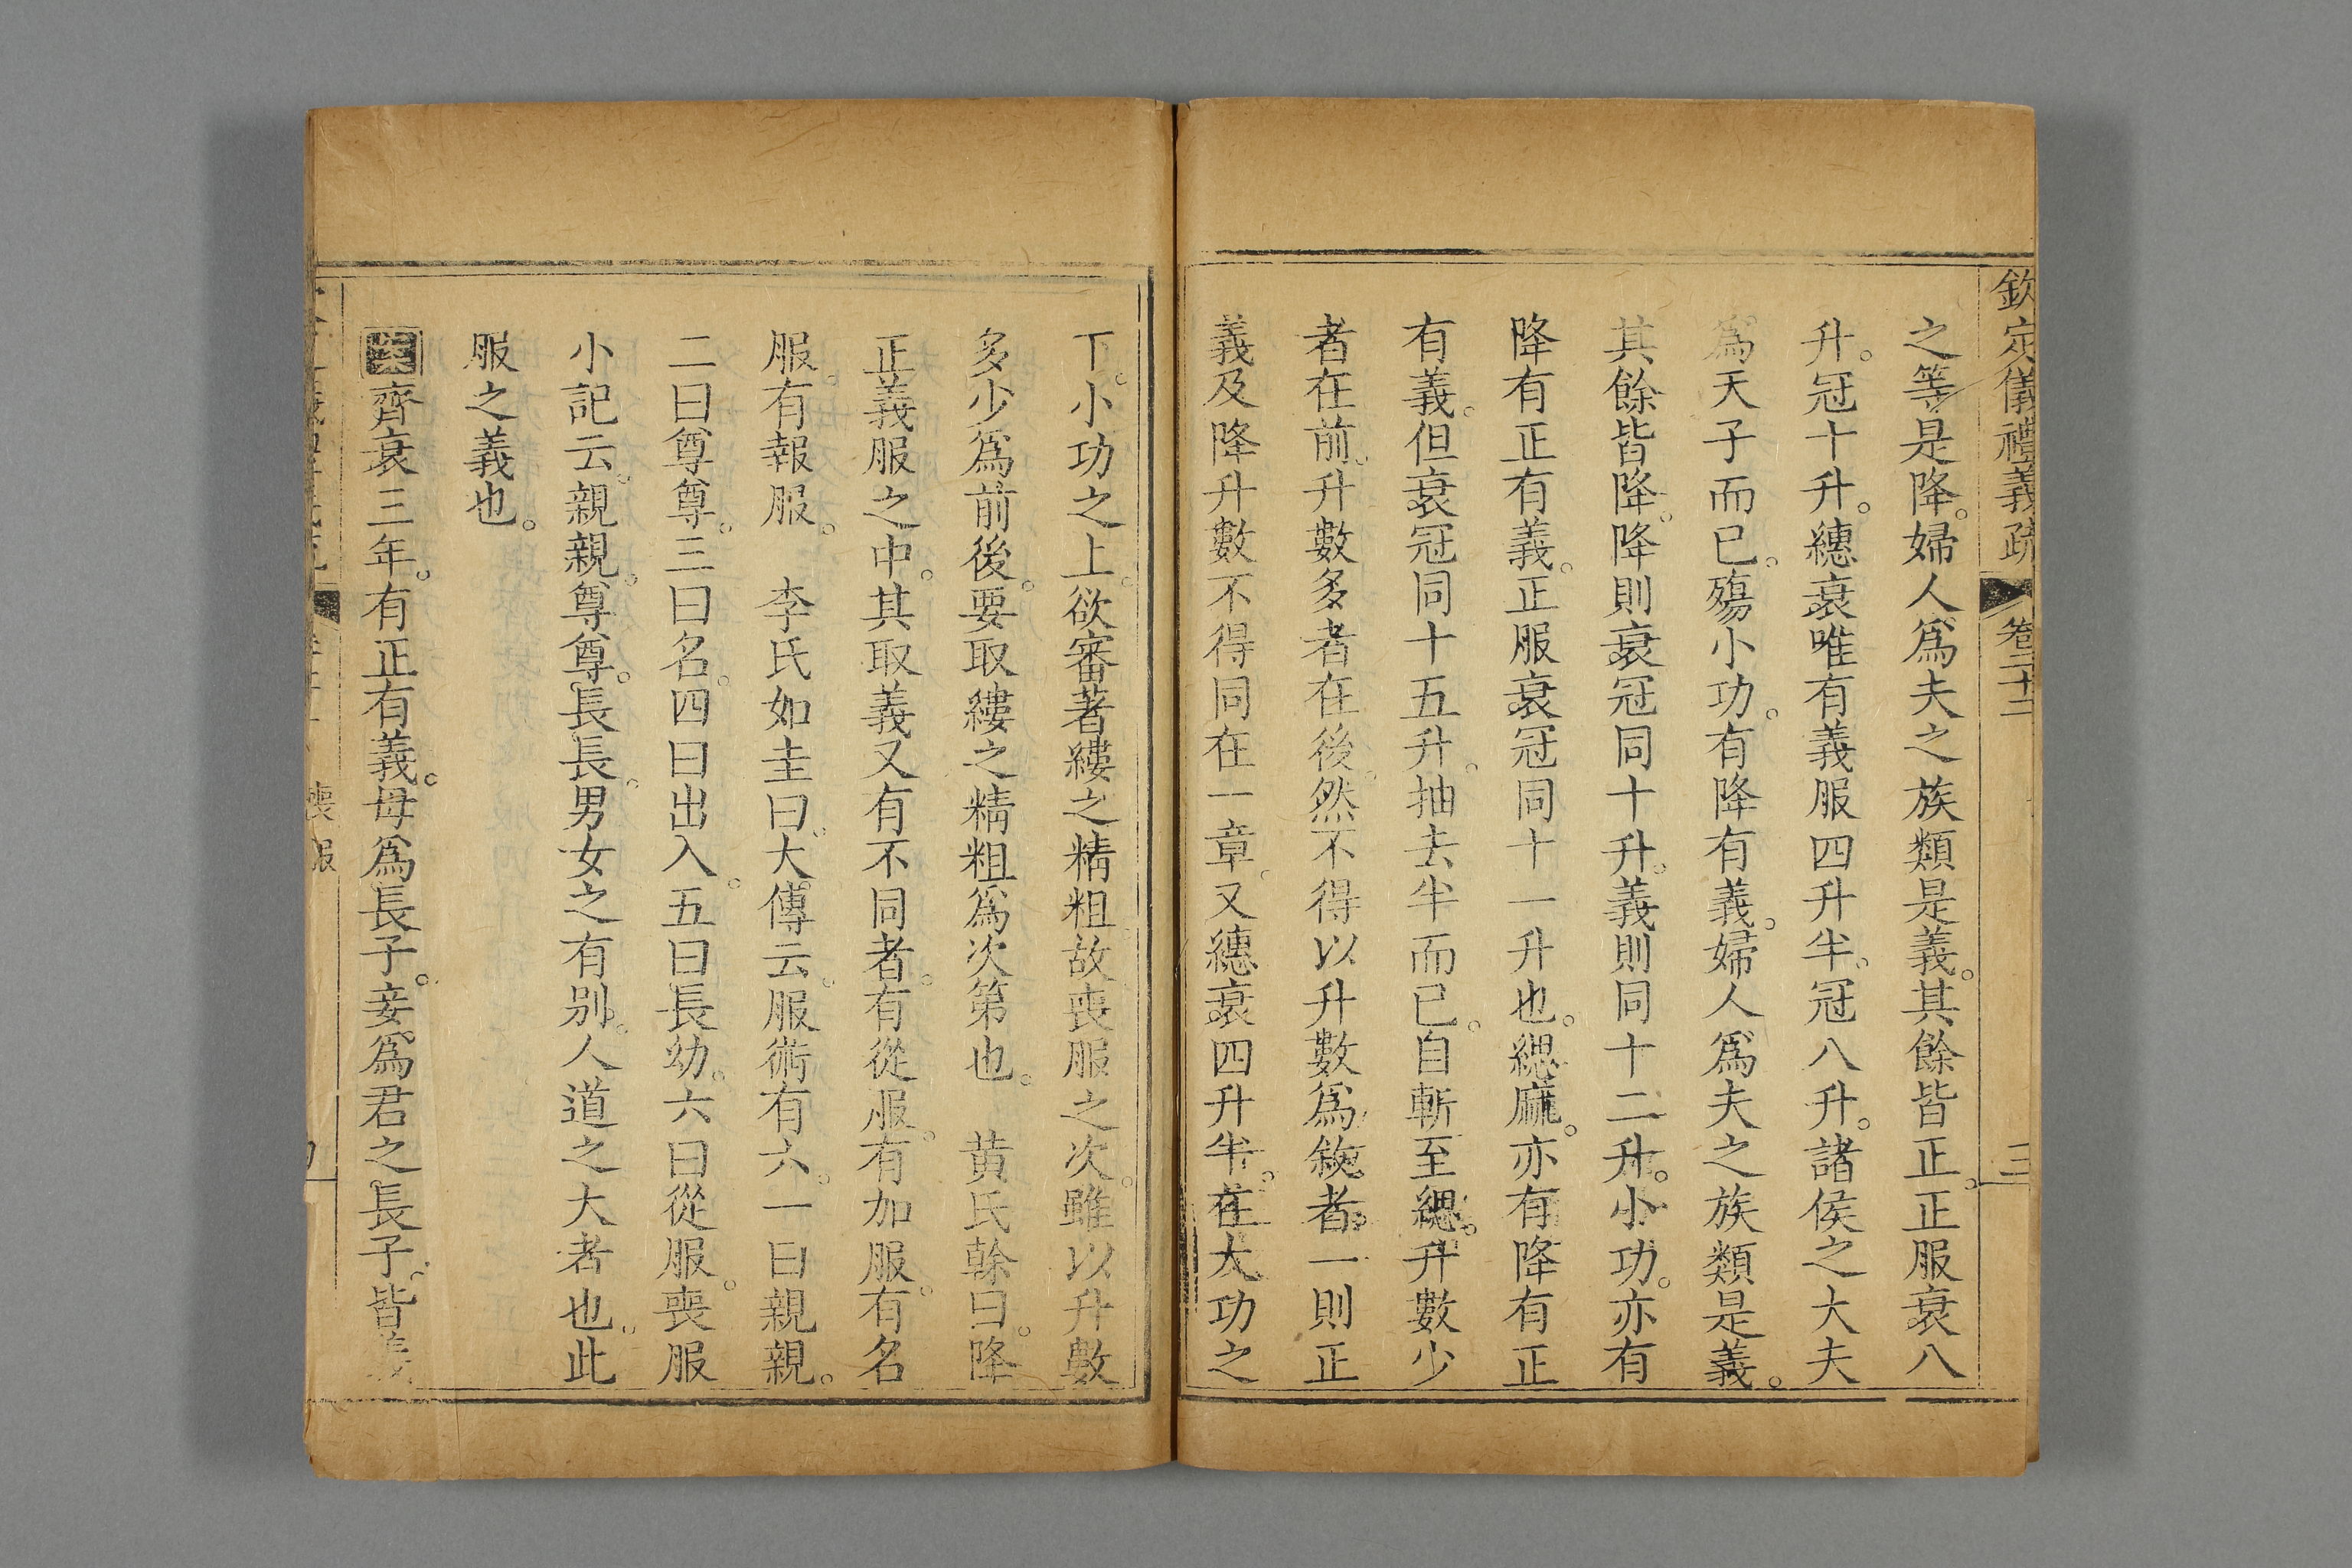 欽定儀禮義疏 卷二十二 三
之等是降。婦人爲夫之族類是義。其餘皆正。正服衰八
升。冠十升。繐衰唯有義服四升半。冠八升。諸侯之大夫
爲天子而已。殤小功。有降有義。婦人爲夫之族類是義。
其餘皆降。降則衰冠同十升。義則同十二升。小功。亦有
降有正有義。正服衰冠同十一升也。緦麻。亦有降有正
有義。但衰冠同十五升。抽去半而已。自斬至緦。升數少
者在前。升數多者在後。然不得以升數爲敘者。一則正
義及降升數不得同在一章。又繐衰四升半。在大功之
下。小功之上。欲審著縷之精粗。故喪服之次。雖以升數
多少爲前後。要取縷之精粗爲次第也。 黄氏榦曰。降
正義服之中。其取義又有不同者。有從服。有加服。有名
服。有報服。 李氏如圭曰。大傳云。服術有六。一曰親親。
二曰尊尊。三曰名。四曰出入。五曰長幼。六曰從服。喪服
小記云。親親。尊尊。長長。男女之有别。人道之大者也。此
服之義也。
齊衰三年。有正有義。母爲長子。妾爲君之長子。皆義
喪服